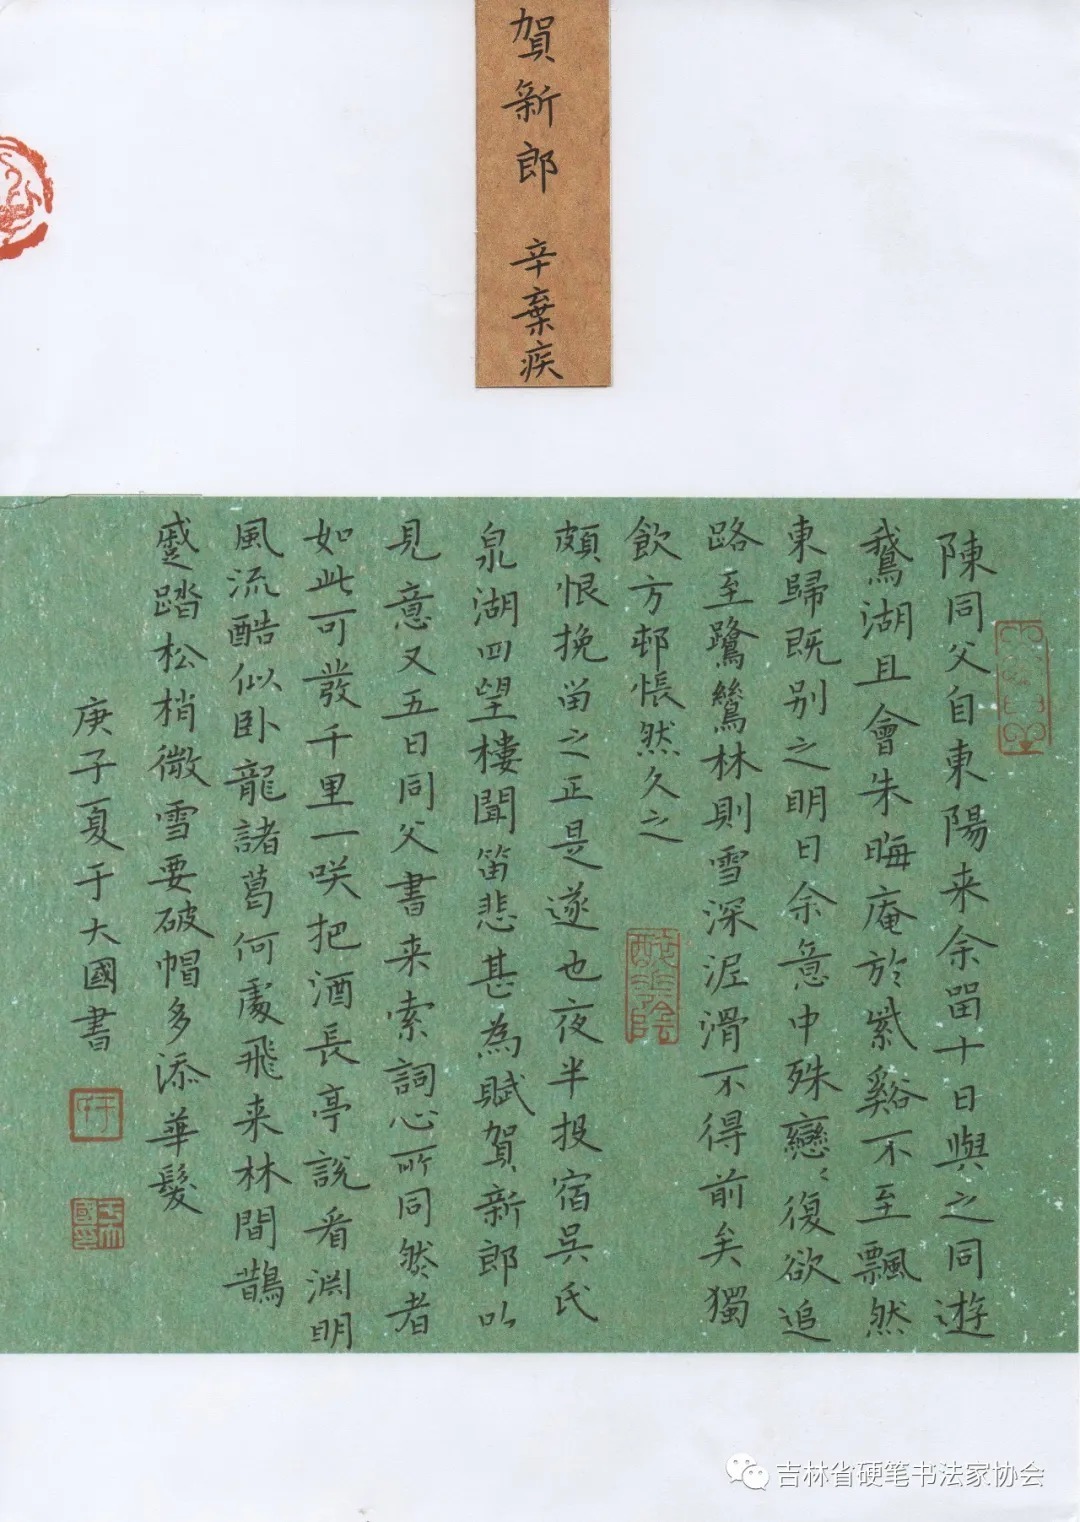 賀新郎 辛棄疾
陳同父自東陽来余畱十日與之同遊
鵞湖且會朱晦庵於紫谿不至飄然
東歸既别之明日余意中殊戀戀復欲追
路至鷺鷥林則雪深泥滑不得前矣獨
飲方邨悵然久之
頗恨挽畱之正是遂也夜半投宿吴氏
泉湖四望樓聞笛悲甚為賦賀新郎以
見意又五日同父書来索詞心所同然者
如此可發千里一咲把酒長亭說看淵明
風流酷似卧龍諸葛何處飛来林間鵲
蹙踏松梢微雪要破帽多添華髮
庚子夏于大國書
吉林省硬笔书法家协会